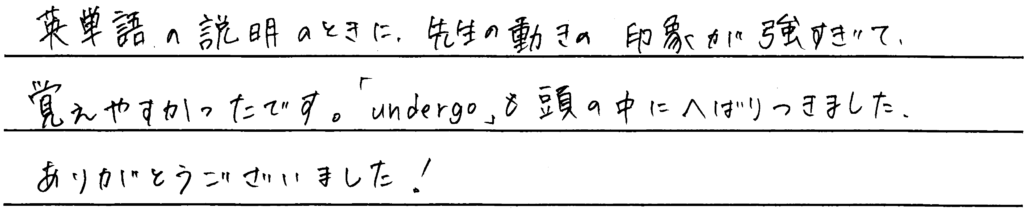 英単語の説明のときに、先生の動きの印象が強すぎて、
覚えやすかったです。「undergo」も頭の中にへばりつきました。
ありがとうございました！